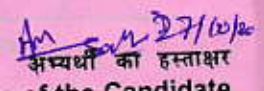 27/10/20
अभ्यर्थी का हस्ताक्षर
of the Candidate